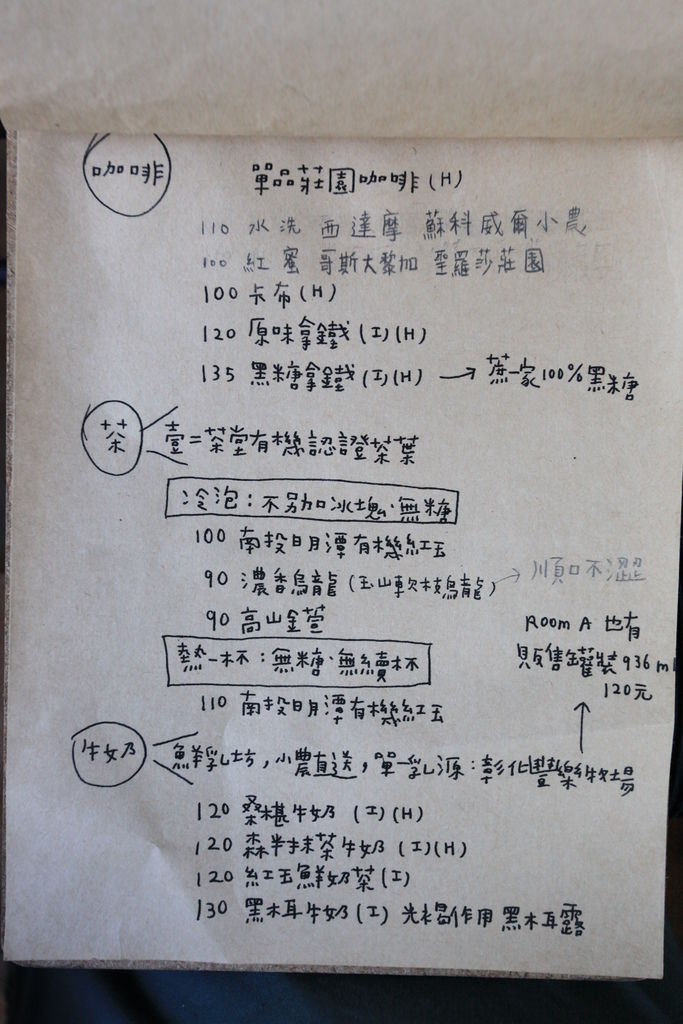 咖啡
單品莊園咖啡(H)
110 水洗 西達摩 蘇科威爾小農
100 紅蜜 哥斯大黎加 聖羅莎莊園
100 卡布(H)
120 原味拿鐵(I)(H)
135 黑糖拿鐵(I)(H) → 蔗一家100%黑糖
茶
壹=茶堂有機認證茶葉
冷泡:不另加冰塊·無糖
100 南投日月潭有機紅玉
90 濃香烏龍(玉山軟枝烏龍) → 順口不澀
90 高山金萱
熱一杯:無糖·無續杯
110 南投日月潭有機紅玉
ROOM A 也有
販售罐裝936ml
120元
牛奶
鮮乳坊,小農直送,單一乳源:彰化豐樂牧場
120 桑椹牛奶 (I)(H)
120 森半抹茶牛奶 (I)(H)
120 紅玉鮮奶茶(I)
130 黑木耳牛奶(I) 光褐作用 黑木耳露